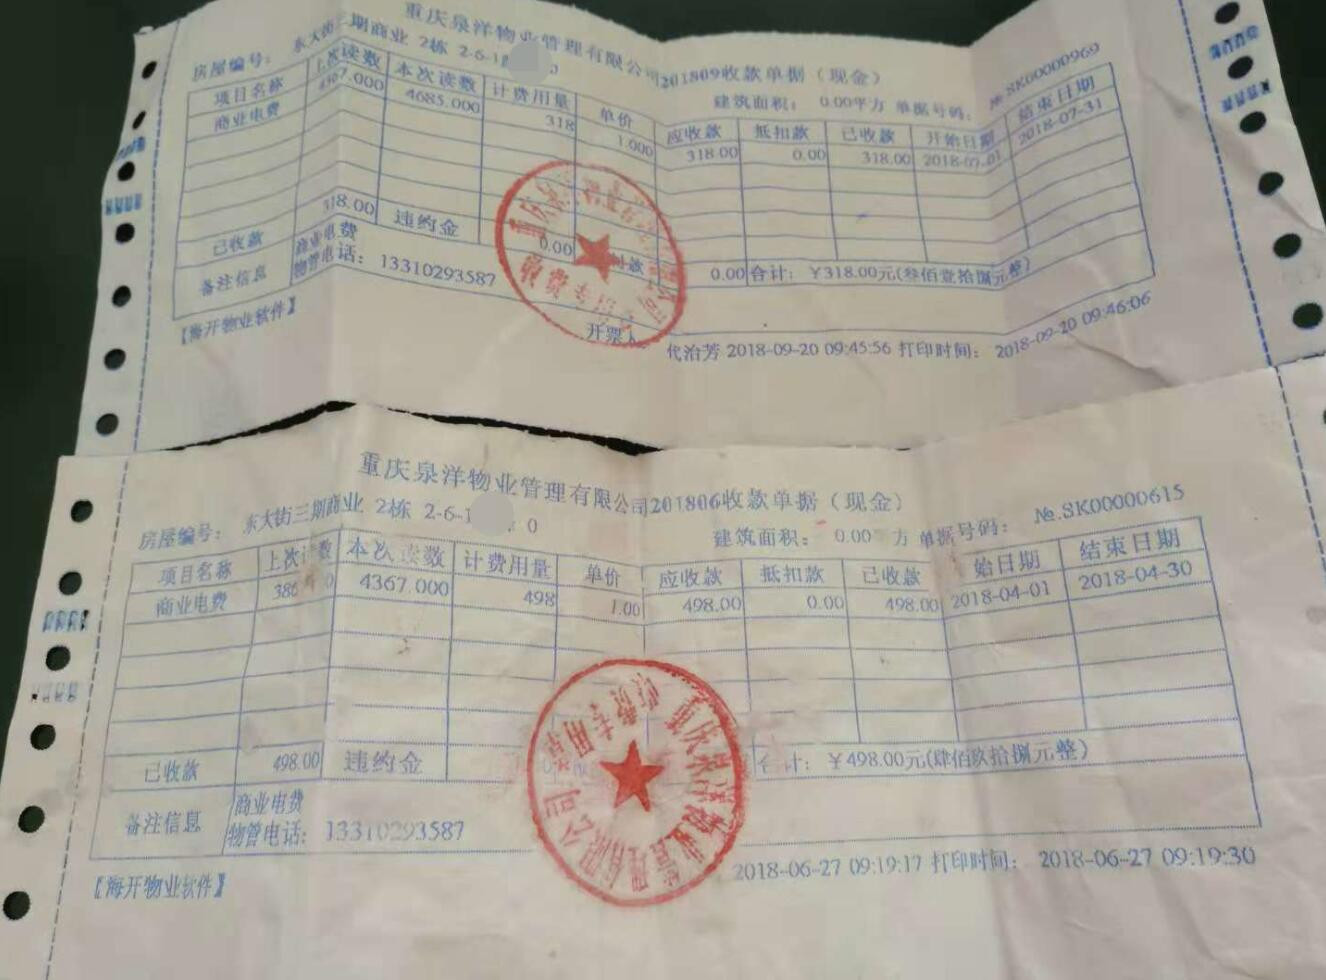 重庆泉洋物业管理有限公司201809收款单据（现金）
房屋编号： 东大街三期商业 2栋 2-6-1 建筑面积： 0.00平方 单据号码： №.SK00000969
项目名称 上次读数 本次读数 计费用量 单价 应收款 抵扣款 已收款 开始日期 结束日期
商业电费 4367.000 4685.000 318 1.000 318.00 0.00 318.00 2018-07-01 2018-07-31
已收款 318.00 违约金 0.00 0.00 合计： ￥318.00元(叁佰壹拾捌元整)
备注信息 商业电费
物管电话： 13310293587
【海开物业软件】 开票人 代治芳 2018-09-20 09:45:56 打印时间： 2018-09-20 09:46:06
重庆泉洋物业管理有限公司201806收款单据（现金）
房屋编号： 东大街三期商业 2栋 2-6-1 0 建筑面积： 0.00 方 单据号码： №.SK00000615
项目名称 上次 数 本次读数 计费用量 单价 应收款 抵扣款 已收款 始日期 结束日期
商业电费 4367.000 498 1.00 498.00 0.00 498.00 2018-04-01 2018-04-30
已收款 498.00 违约金 合计： ￥498.00元(肆佰玖拾捌元整)
备注信息 商业电费
物管电话： 13310293587
重庆泉洋物业管理有限公司
收费专用章
【海开物业软件】 2018-06-27 09:19:17 打印时间： 2018-06-27 09:19:30